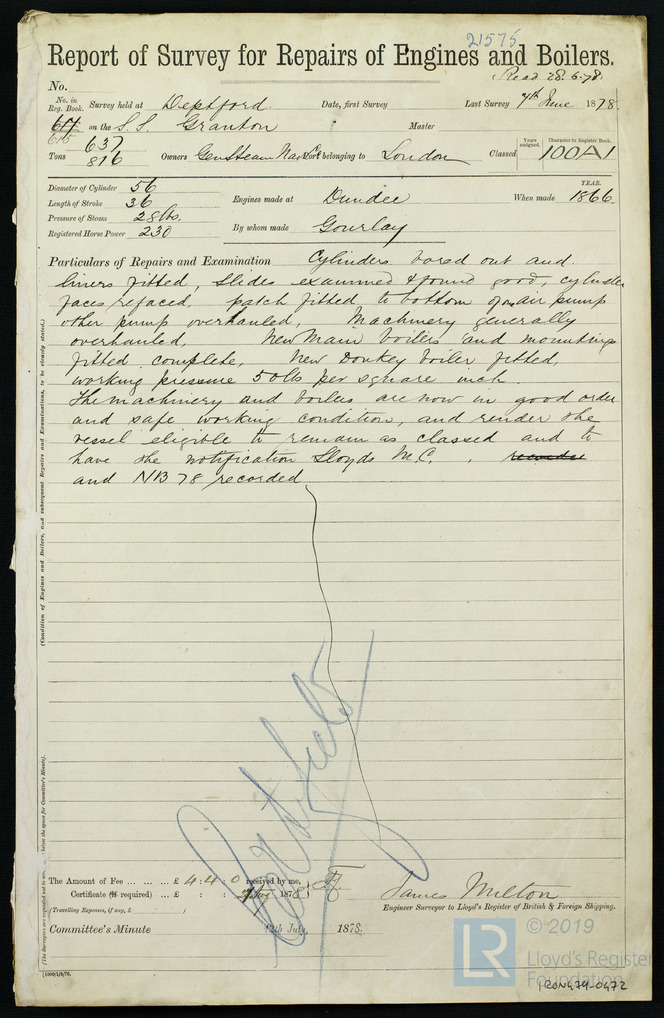 21575
Report of Survey for Repairs of Engines and Boilers.
Recd 28.6.78
No.
No. in Reg. Book. Survey held at Deptford Date, first Survey Last Survey 7th June 1878
on the S.S. Granton Master
Tons 637 816 Owners Gen Steam Nav Co Port belonging to London Classed Years assigned. Character in Register Book. 100A1
Diameter of Cylinder 56
Length of Stroke 36
Pressure of Steam 28 lbs.
Registered Horse Power 230
Engines made at Dundee When made YEAR. 1866.
By whom made Gourlay
Particulars of Repairs and Examination Cylinders bored out and
liners fitted, slides examined & found good, cylinder
faces refaced, patch fitted to bottom of one air pump
other pump overhauled, Machinery generally
overhauled, New Main boilers and mountings
fitted complete, New Donkey boiler fitted,
working pressure 50 lbs per square inch.
The machinery and boilers are now in good order
and safe working condition, and render the
vessel eligible to remain as classed and to
have the notification Lloyds M.C. , recorded
and NB 78 recorded
(Condition of Engines and Boilers, and subsequent Repairs and Examinations, to be clearly stated.)
The Amount of Fee ... ... ... £ 4 . 4 . 0 received by me,
Certificate (if required) ... £ : : 1878
(Travelling Expenses, if any, £ )
James Milton
Engineer Surveyor to Lloyd's Register of British & Foreign Shipping.
Committee's Minute 12th July, 1878.
© 2019
LR Lloyd's Register
Foundation
IRON474-0472